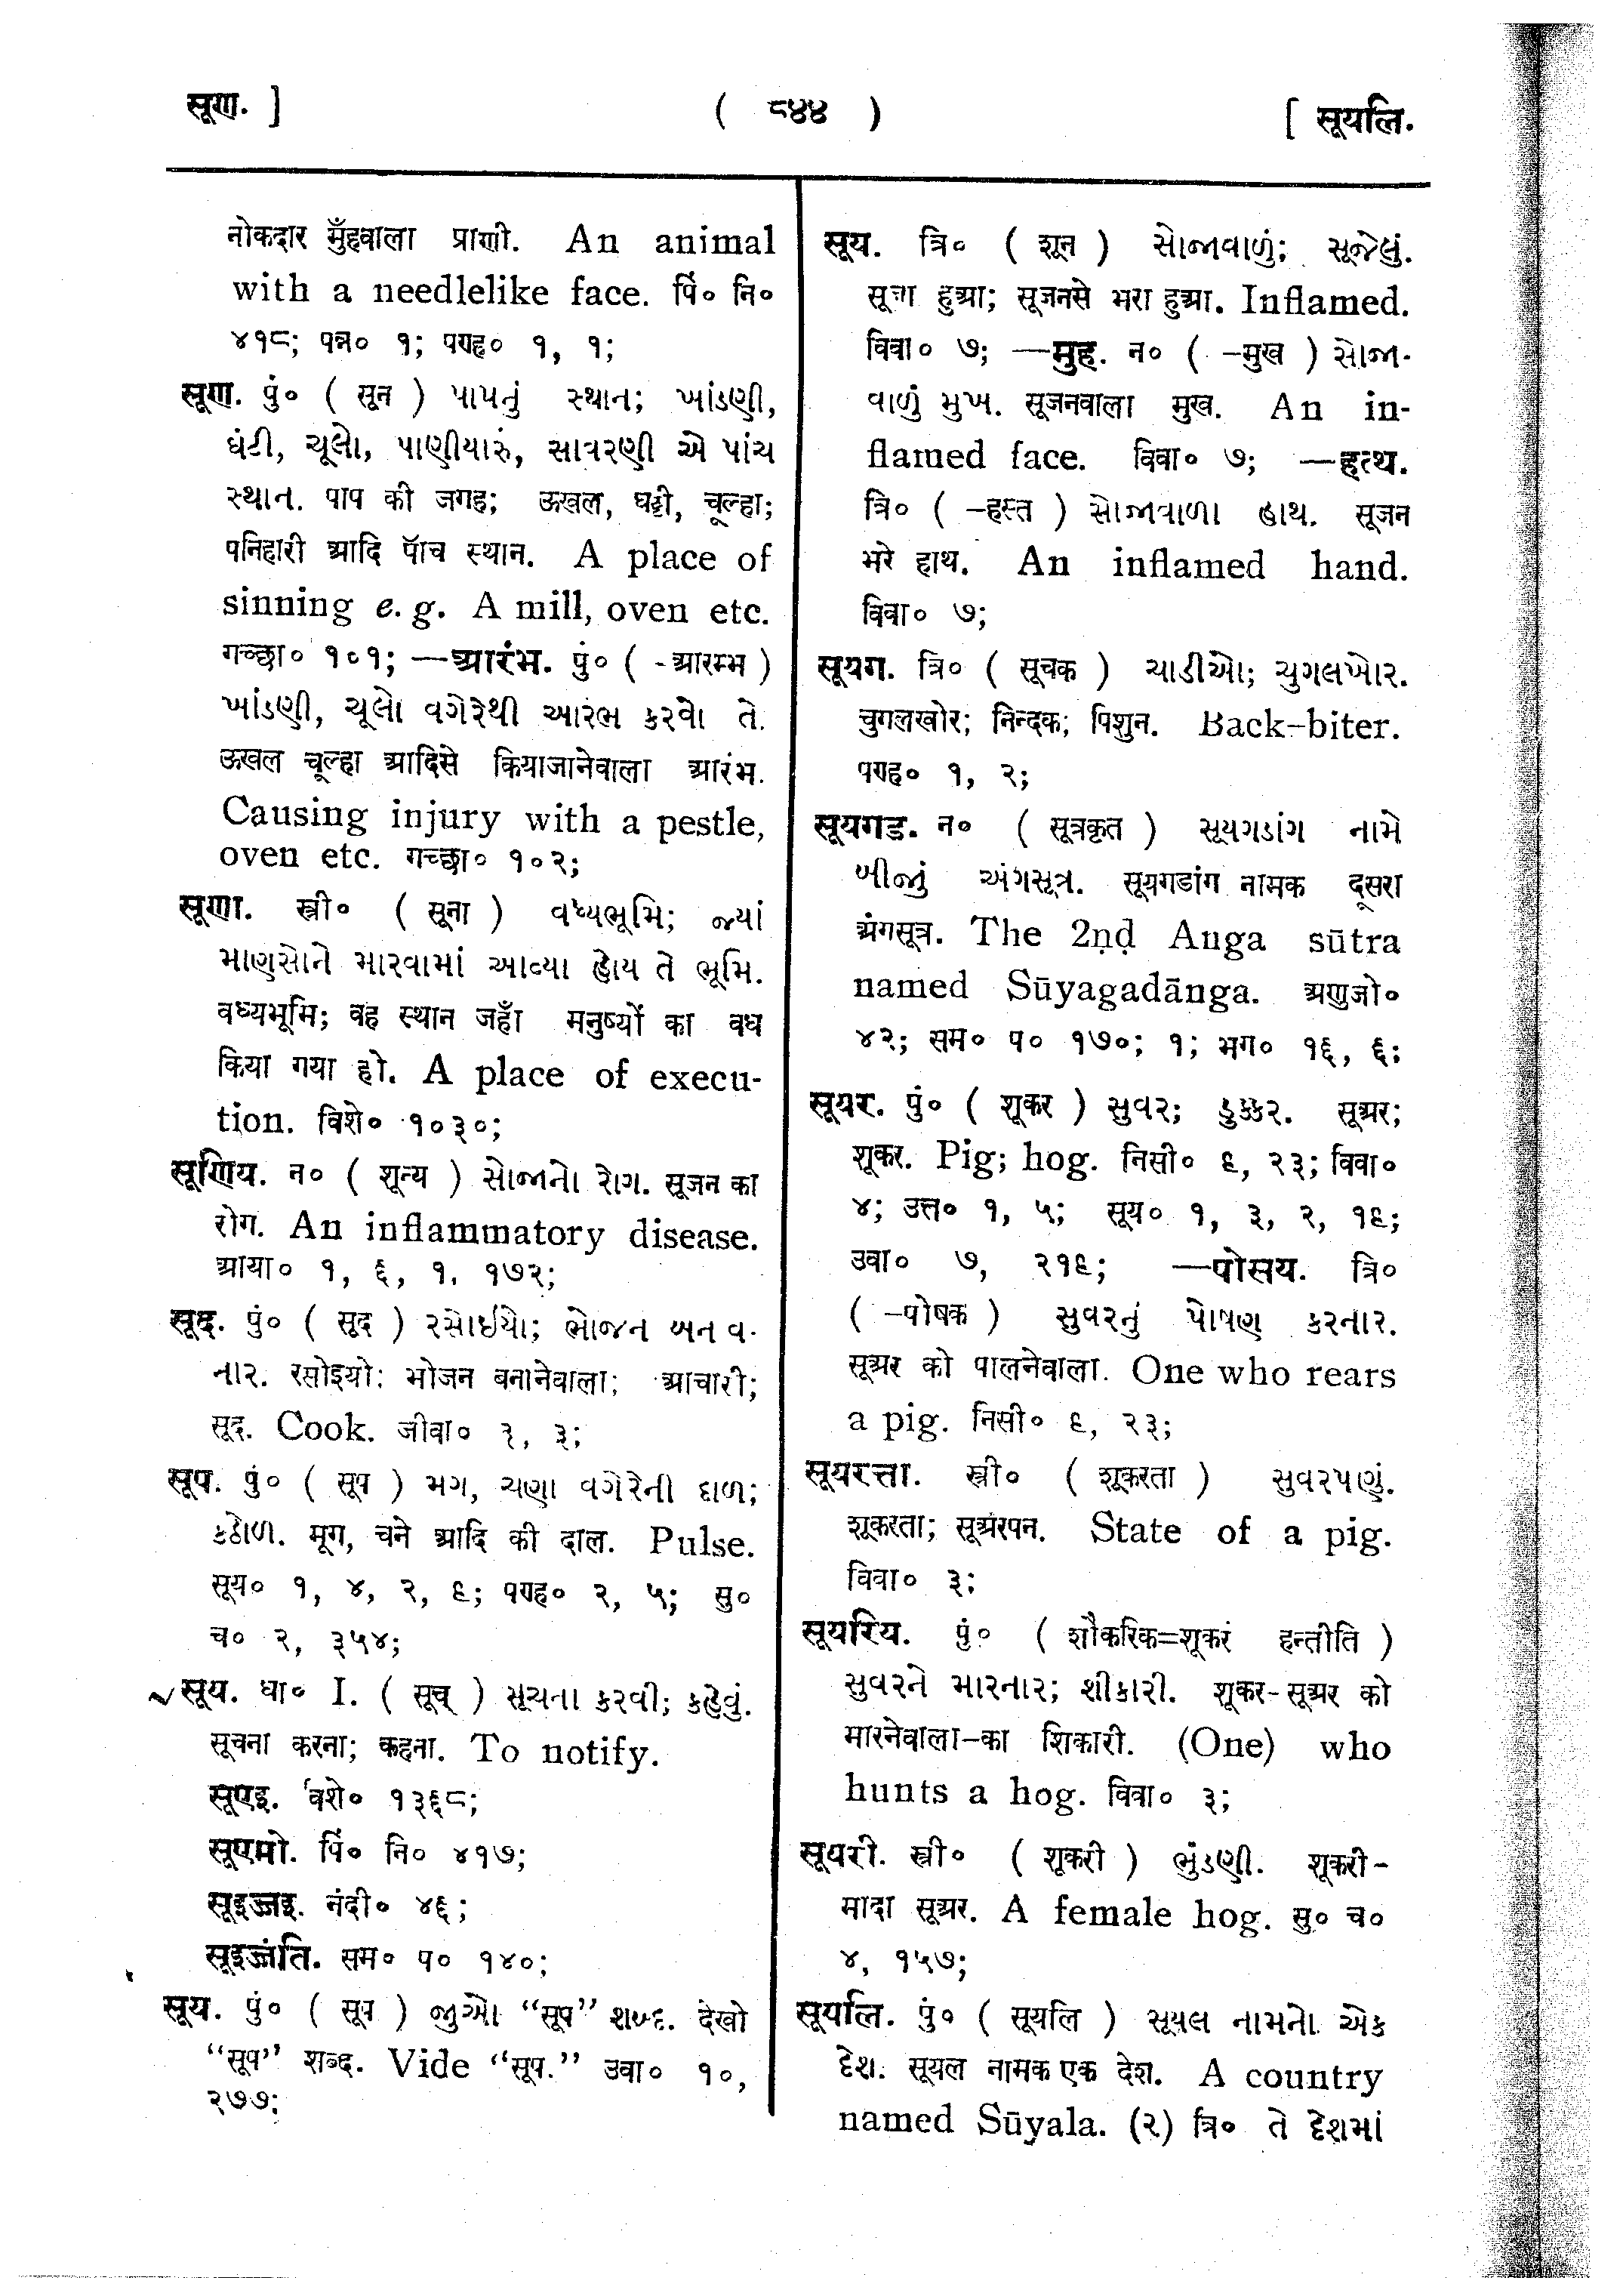 सूण. ]
( ८४४ )
[ सूयलि.
नोकदार मुँहवाला प्राणी. An animal
with a needlelike face. पिं० नि०
४१८; पन्न० १; पण्ह० १, १;
सूण. पुं० ( सून ) પાપનું સ્થાન; ખાંડણી,
ઘંટી, ચૂલો, પાણીયારું, સાવરણી એ પાંચ
સ્થાન. पाप की जगह; ऊखल, घट्टी, चूल्हा;
पनिहारी आदि पॅाच स्थान. A place of
sinning e. g. A mill, oven etc.
गच्छा० १०१; —आरंभ. पुं० ( -आरम्भ )
ખાંડણી, ચૂલો વગેરેથી આરંભ કરવો તે.
ऊखल चूल्हा आदिसे कियाजानेवाला आरंभ.
Causing injury with a pestle,
oven etc. गच्छा० १०२;
सूणा. स्त्री० ( सूना ) વધ્યભૂમિ; જ્યાં
માણસોને મારવામાં આવ્યા હોય તે ભૂમિ.
वध्यभूमि; वह स्थान जहाँ मनुष्यों का वध
किया गया हो. A place of execu-
tion. विशे० १०३०;
सूणिय. न० ( शून्य ) સોજાનો રોગ. सूजन का
रोग. An inflammatory disease.
आया० १, ६, १. १७२;
सूद. पुं० ( सूद ) રસોઈયો; ભોજન બનાવ-
નાર. रसोइयो; भोजन बनानेवाला; आचारी;
सूद. Cook. जीवा० ३, ३;
सूप. पुं० ( सूप ) મગ, ચણા વગેરેની દાળ;
કઠોળ. मूग, चने आदि की दाल. Pulse.
सूय० १, ४, २, ६; पण्ह० २, ५; सु०
च० २, ३५४;
√ सूय. धा० I. ( सूच् ) સૂચના કરવી; કહેવું.
सूचना करना; कहना. To notify.
सूएइ. विशे० १३६८;
सूएमो. पिं० नि० ४१७;
सूइज्जइ. नंदी० ४६;
सूइज्जंति. सम० प० १४०;
सूय. पुं० ( सूप ) જુઓ "सूप" શબ્દ. देखो
"सूप" शब्द. Vide "सूप." उवा० १०,
२७७;
सूय. त्रि० ( शून ) સોજાવાળું; સૂજેલું.
सूजा हुआ; सूजनसे भरा हुआ. Inflamed.
विवा० ७; —मुह. न० ( -मुख ) સોજા-
વાળું મુખ. सूजनवाला मुख. An in-
flamed face. विवा० ७; —हत्थ.
त्रि० ( -हस्त ) સોજાવાળા હાથ. सूजन
भरे हाथ. An inflamed hand.
विवा० ७;
सूयग. त्रि० ( सूचक ) ચાડીઓ; ચુગલખોર.
चुगलखोर; निन्दक; पिशुन. Back-biter.
पण्ह० १, २;
सूयगड. न० ( सूत्रकृत ) સૂયગડાંગ નામે
બીજું અંગસૂત્ર. सूयगडांग नामक दूसरा
अंगसूत्र. The 2ṇḍ Anga sūtra
named Sūyagadānga. अणुजो०
४२; सम० प० १७०; १; भग० १६, ६;
सूयर. पुं० ( शूकर ) સુવર; ડુક્કર. सूअर;
शूकर. Pig; hog. निसी० ६, २३; विवा०
४; उत्त० १, ५; सूय० १, ३, २, १६;
उवा० ७, २१६; —पोसय. त्रि०
( -पोषक ) સુવરનું પોષણ કરનાર.
सूअर को पालनेवाला. One who rears
a pig. निसी० ६, २३;
सूयरत्ता. स्त्री० ( शूकरता ) સુવરપણું.
शूकरता; सूअंरपन. State of a pig.
विवा० ३;
सूयरिय. पुं० ( शौकरिक=शूकरं हन्तीति )
સુવરને મારનાર; શીકારી. शूकर-सूअर को
मारनेवाला-का शिकारी. (One) who
hunts a hog. विवा० ३;
सूयरी. स्त्री० ( शूकरी ) ભુંડણી. शूकरी-
मादा सूअर. A female hog. सु० च०
४, १५७;
सूयलि. पुं० ( सूयलि ) સૂયલ નામનો એક
દેશ. सूयल नामक एक देश. A country
named Sūyala. (२) त्रि० તે દેશમાં